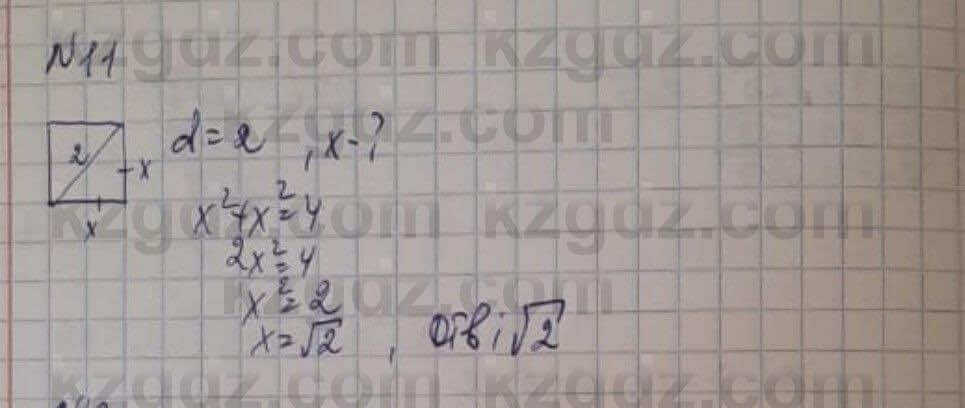 N11
2
x
x
d=2 , x-?
x²+x²=4
2x²=4
x²=2
x=√2 , Отв: √2
kzgdz.com kzgdz.com
kzgdz.com
kzgdz.com kzgdz.com
kzgdz.com
kzgdz.com kzgdz.com